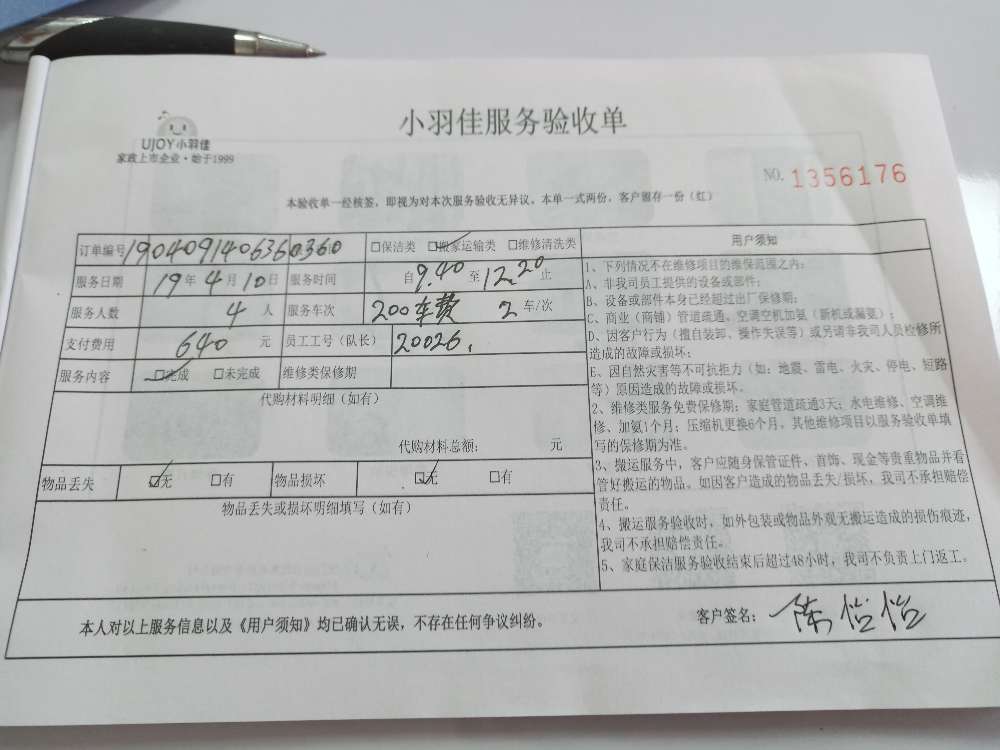 UJOY小羽佳
家政上市企业·始于1999
小羽佳服务验收单
NO. 1356176
本验收单一经核签，即视为对本次服务验收无异议。本单一式两份，客户留存一份（红）
订单编号 1904091406360360 □保洁类 ☑搬家运输类 □维修清洗类
服务日期 19年4月10日 服务时间 自9.40至12.20止
服务人数 4人 服务车次 200车费 2车/次
支付费用 640元 员工工号（队长） 20026.
服务内容 ☑完成 □未完成 维修类保修期
代购材料明细（如有）
代购材料总额： 元
物品丢失 ☑无 □有 物品损坏 ☑无 □有
物品丢失或损坏明细填写（如有）
用户须知
1、下列情况不在维修项目的维保范围之内：
A、非我司员工提供的设备或部件；
B、设备或部件本身已经超过出厂保修期；
C、商业（商铺）管道疏通、空调空机加氨（新机或漏氨）；
D、因客户行为（擅自装卸、操作失误等）或另请非我司人员检修所
造成的故障或损坏；
E、因自然灾害等不可抗拒力（如：地震、雷电、火灾、停电、短路
等）原因造成的故障或损坏。
2、维修类服务免费保修期：家庭管道疏通3天；水电维修、空调维
修、加氨1个月；压缩机更换6个月，其他维修项目以服务验收单填
写的保修期为准。
3、搬运服务中，客户应随身保管证件、首饰、现金等贵重物品并看
管好搬运的物品。如因客户造成的物品丢失/损坏，我司不承担赔偿
责任。
4、搬运服务验收时，如外包装或物品外观无搬运造成的损伤痕迹，
我司不承担赔偿责任。
5、家庭保洁服务验收结束后超过48小时，我司不负责上门返工。
本人对以上服务信息以及《用户须知》均已确认无误，不存在任何争议纠纷。
客户签名：陈怡怡